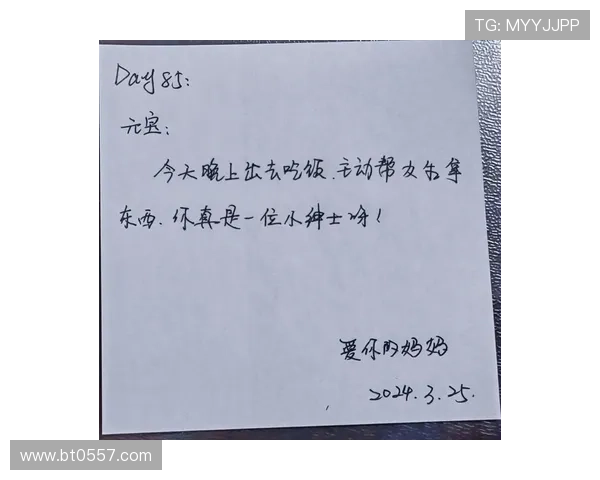 TG: MYYJJPP
Day 85:
元宝:
今天晚上出去吃饭.主动帮女生拿
东西.你真是一位小绅士呀!
爱你的妈妈
2024.3.25.
www.bt0557.com